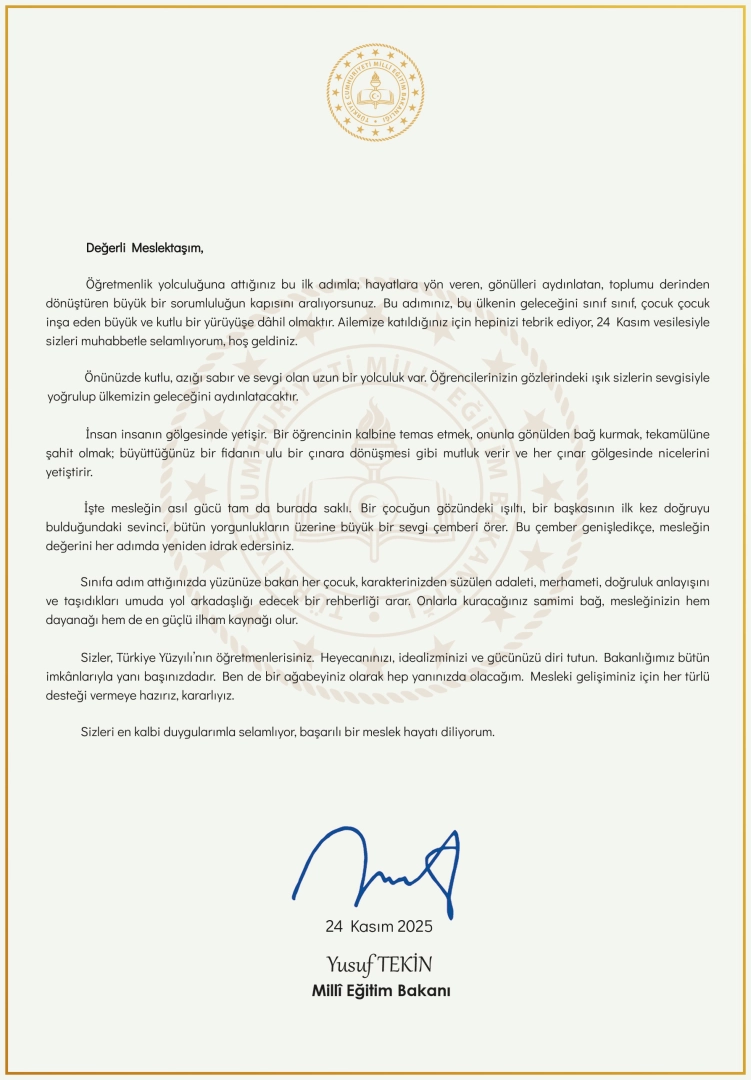 TÜRKİYE CUMHURİYETİ MİLLÎ EĞİTİM BAKANLIĞI
Değerli Meslektaşım,
Öğretmenlik yolculuğuna attığınız bu ilk adımla; hayatlara yön veren, gönülleri aydınlatan, toplumu derinden
dönüştüren büyük bir sorumluluğun kapısını aralıyorsunuz. Bu adımınız, bu ülkenin geleceğini sınıf sınıf, çocuk çocuk
inşa eden büyük ve kutlu bir yürüyüşe dâhil olmaktır. Ailemize katıldığınız için hepinizi tebrik ediyor, 24 Kasım vesilesiyle
sizleri muhabbetle selamlıyorum, hoş geldiniz.
Önünüzde kutlu, azığı sabır ve sevgi olan uzun bir yolculuk var. Öğrencilerinizin gözlerindeki ışık sizlerin sevgisiyle
yoğrulup ülkemizin geleceğini aydınlatacaktır.
İnsan insanın gölgesinde yetişir. Bir öğrencinin kalbine temas etmek, onunla gönülden bağ kurmak, tekamülüne
şahit olmak; büyüttüğünüz bir fidanın ulu bir çınara dönüşmesi gibi mutluk verir ve her çınar gölgesinde nicelerini
yetiştirir.
İşte mesleğin asıl gücü tam da burada saklı. Bir çocuğun gözündeki ışıltı, bir başkasının ilk kez doğruyu
bulduğundaki sevinci, bütün yorgunlukların üzerine büyük bir sevgi çemberi örer. Bu çember genişledikçe, mesleğin
değerini her adımda yeniden idrak edersiniz.
Sınıfa adım attığınızda yüzünüze bakan her çocuk, karakterinizden süzülen adaleti, merhameti, doğruluk anlayışını
ve taşıdıkları umuda yol arkadaşlığı edecek bir rehberliği arar. Onlarla kuracağınız samimi bağ, mesleğinizin hem
dayanağı hem de en güçlü ilham kaynağı olur.
Sizler, Türkiye Yüzyılı’nın öğretmenlerisiniz. Heyecanınızı, idealizminizi ve gücünüzü diri tutun. Bakanlığımız bütün
imkânlarıyla yanı başınızdadır. Ben de bir ağabeyiniz olarak hep yanınızda olacağım. Mesleki gelişiminiz için her türlü
desteği vermeye hazırız, kararlıyız.
Sizleri en kalbi duygularımla selamlıyor, başarılı bir meslek hayatı diliyorum.
24 Kasım 2025
Yusuf TEKİN
Millî Eğitim Bakanı